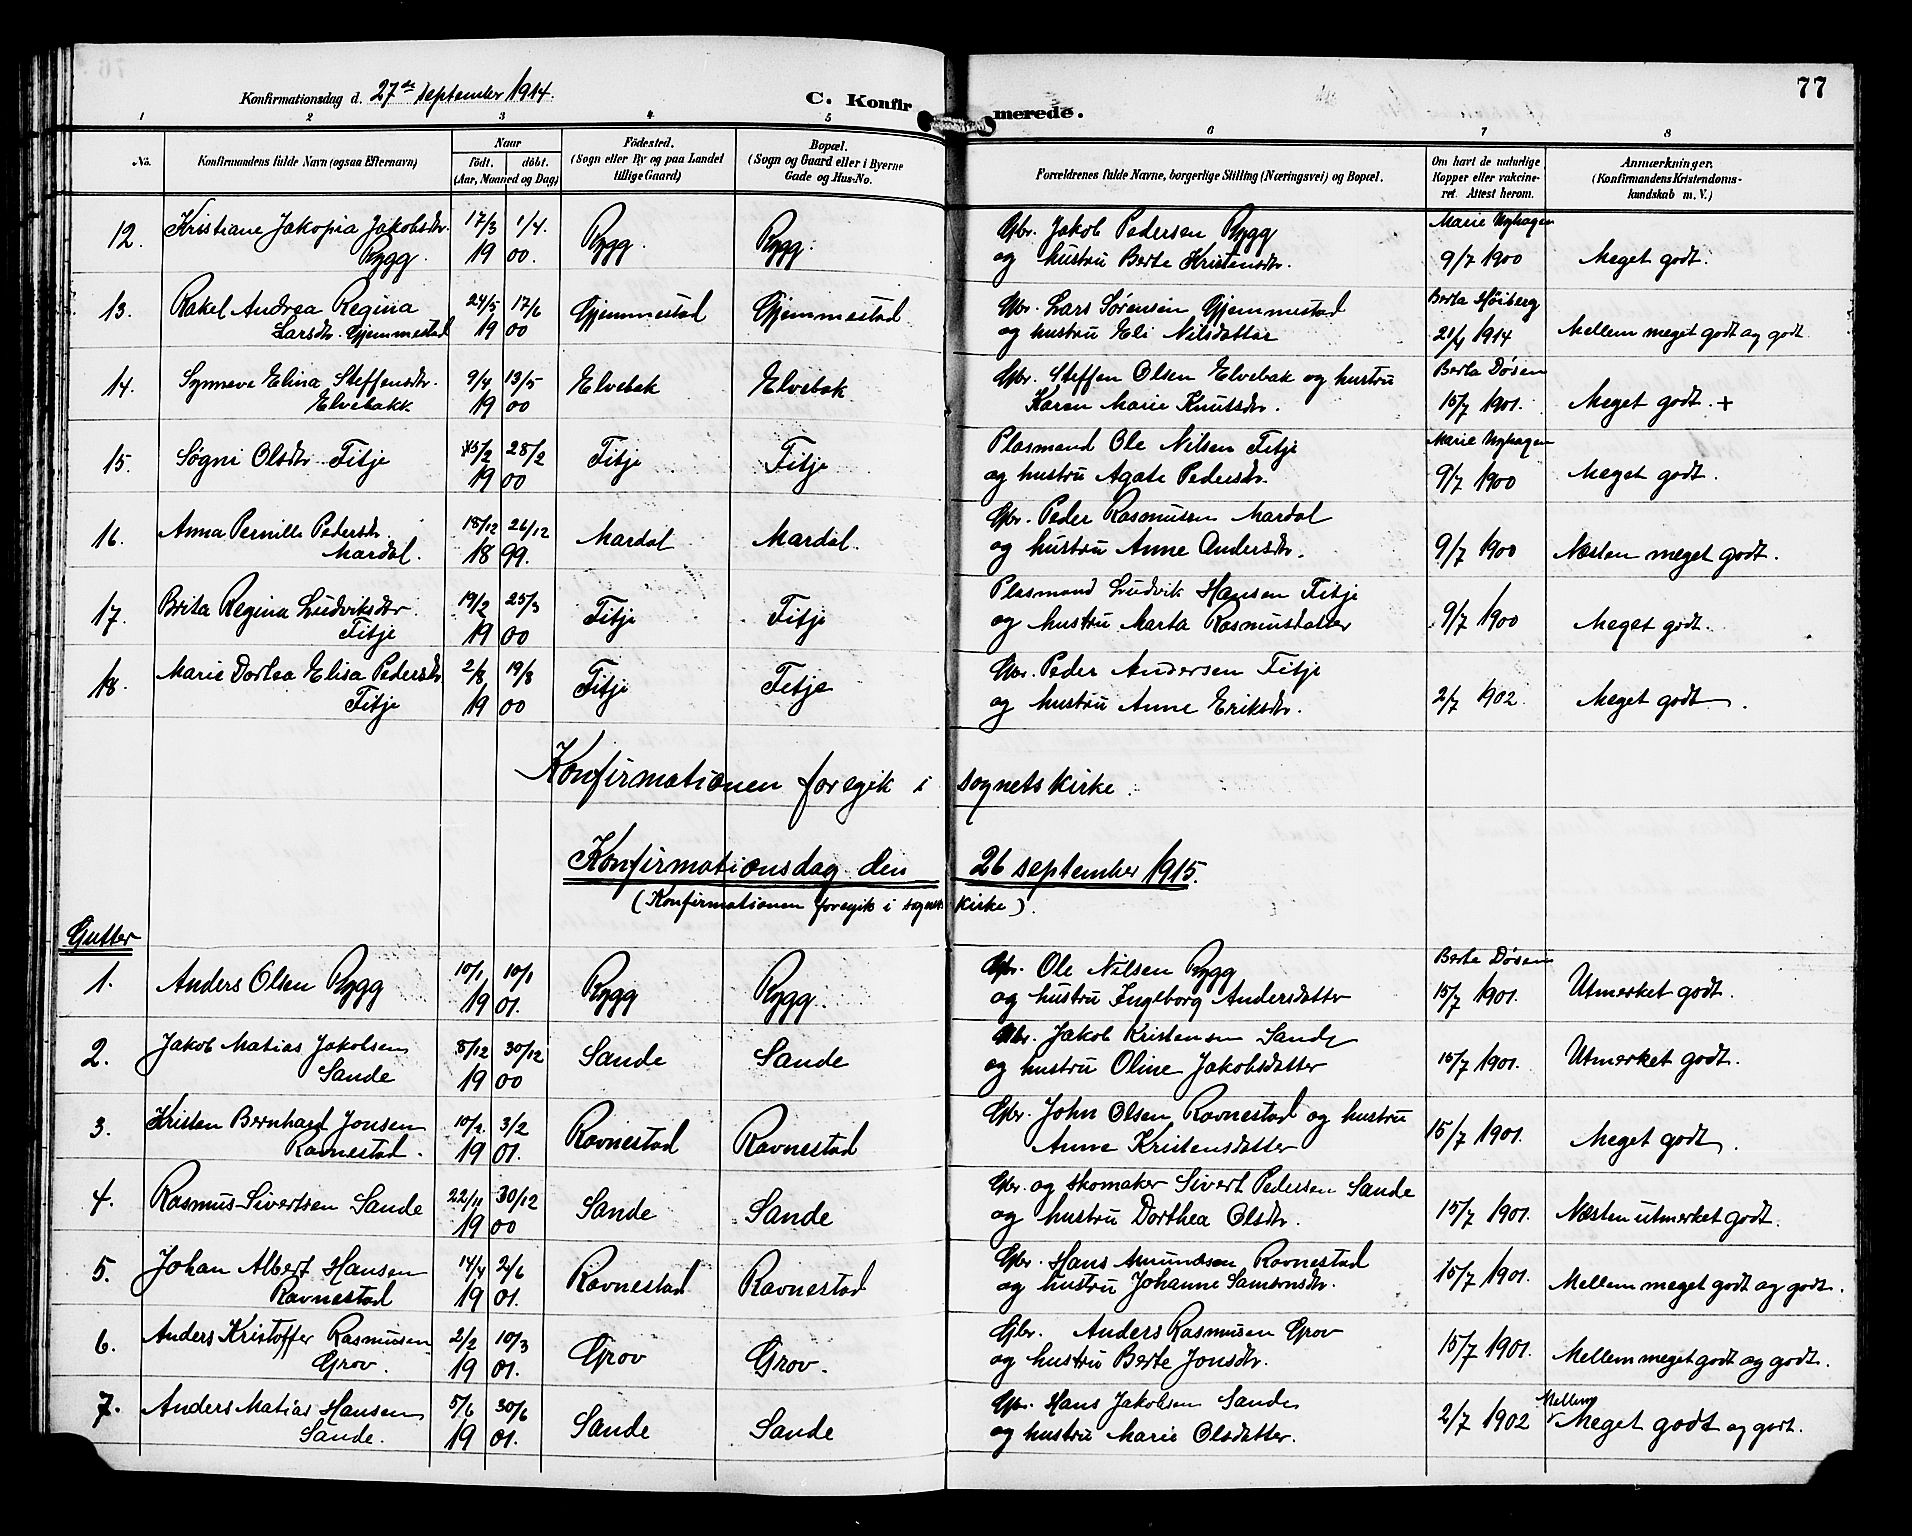 77
Konfirmationsdag d. 27de september 1914.
C. Konfirmerede.
1 2 3 4 5 6 7 8
No.
Konfirmandens fulde Navn (ogsaa Efternavn)
Naar
födt. döbt.
(Aar, Maaned og Dag)
Födested.
(Sogn eller By og paa Landet
tillige Gaard)
Bopæl.
(Sogn og Gaard eller i Byerne
Gade og Hus-No.
Forældrenes fulde Navne, borgerlige Stilling (Næringsvei) og Bopæl.
Om havt de naturlige
Kopper eller vakcine-
ret. Attest herom.
Anmærkninger.
(Konfirmandens Kristendoms-
kundskab m. V.)
12. Kristiane Jakopia Jakobsdr. 17/3 1/4. Rygg. Rygg. Gbr. Jakob Pedersen Rygg Marie Nyhagen
Rygg. 19 00. og hustru Berte Kristensdr. 9/7 1900 Meget godt.
13. Rakel Andrea Regina 24/5 17/6 Gjemmestad Gjemmestad Gbr. Lars Sørensen Gjemmestad Berta Høiberg
Larsdr. Gjemmestad 19 00 og hustru Eli Nilsdatter 1914 Mellem meget godt og godt
14. Synneve Elina Steffensdr. 9/4 13/5 Elvebak Elvebak Gbr. Steffen Olsen Elvebak og hustru Berta Døsen
Elvebakk 19 00 Karen Marie Knutsdr. 15/7 1901. Meget godt. +
15. Søgni Olsdr. Fitje 28/2 Fitje Fitje Plasmand Ole Nilsen Fitje Marie Nyhagen
19 00 og hustru Agate Pedersdr. 9/7 1900 Meget godt.
16. Anna Pernille Pedersdr. 18/12 26/12 Mardal Mardal. Gbr. Peder Rasmusen Mardal
Mardal. 18 99. og hustru Anne Andersdr. 9/7 1900 Næsten meget godt.
17. Brita Regina Ludviksdr 19/2 25/3 Fitje Fitje Plasmand Ludvik Hansen Fitje
Fitje 19 00 og hustru Marta Rasmusdatter 9/7 1900 Meget godt.
18. Marie Dortea Elisa Pedersdr 2/8 19/8 Fitje Fitje Gbr. Peder Andersen Fitje
Fitje 19 00 og hustru Anne Eriksdr. 2/7 1902. Meget godt.
Konfirmationen foregik i sognets kirke.
Konfirmationsdag den 26 september 1915.
(Konfirmationen foregik i sognets kirke).
Gutter
1. Anders Olsen Rygg 10/1 10/1 Rygg Rygg. Gbr. Ole Nilsen Rygg Berte Døsen
19 01. og hustru Ingeborg Andersdatter 15/7 1901. Utmerket godt.
2. Jakob Matias Jakobsen 8/12 30/12 Sande Sande Gbr. Jakob Kristensen Sande
Sande 19 00 og hustru Oline Jakobsdatter 15/7 1901. Utmerket godt.
3. Kristen Bernhard Jonsen 3/2 Ravnestad Ravnestad Gbr. John Olsen Ravnestad og hustru
Ravnestad. 19 01. Anne Kristensdatter 15/7 1901. Meget godt.
4. Rasmus Sivertsen Sande 22/11 30/12 Sande Sande Gbr. og skomaker Sivert Pedersen Sande
19 00 og hustru Dorthea Olsdr. 15/7 1901. Næsten utmerket godt.
5. Johan Albert Hansen 14/4 2/6 Ravnestad Ravnestad Gbr. Hans Amundsen Ravnestad
Ravnestad 19 01. og hustru Johanne 15/7 1901. Mellem meget godt og godt.
6. Anders Kristoffer Rasmusen 2/2 10/3 Grov Grov. Gbr. Anders Rasmusen Grov
Grov. 19 01. og hustru Berte Jonsdr. 15/7 1901. Mellem meget godt og godt.
7. Anders Matias Hansen 5/6 30/6 Sande Sande Gbr. Hans Jakobsen Sande Mellem
Sande. 19 01. og hustru Marie Olsdatter. 2/7 1902 Meget godt og godt.